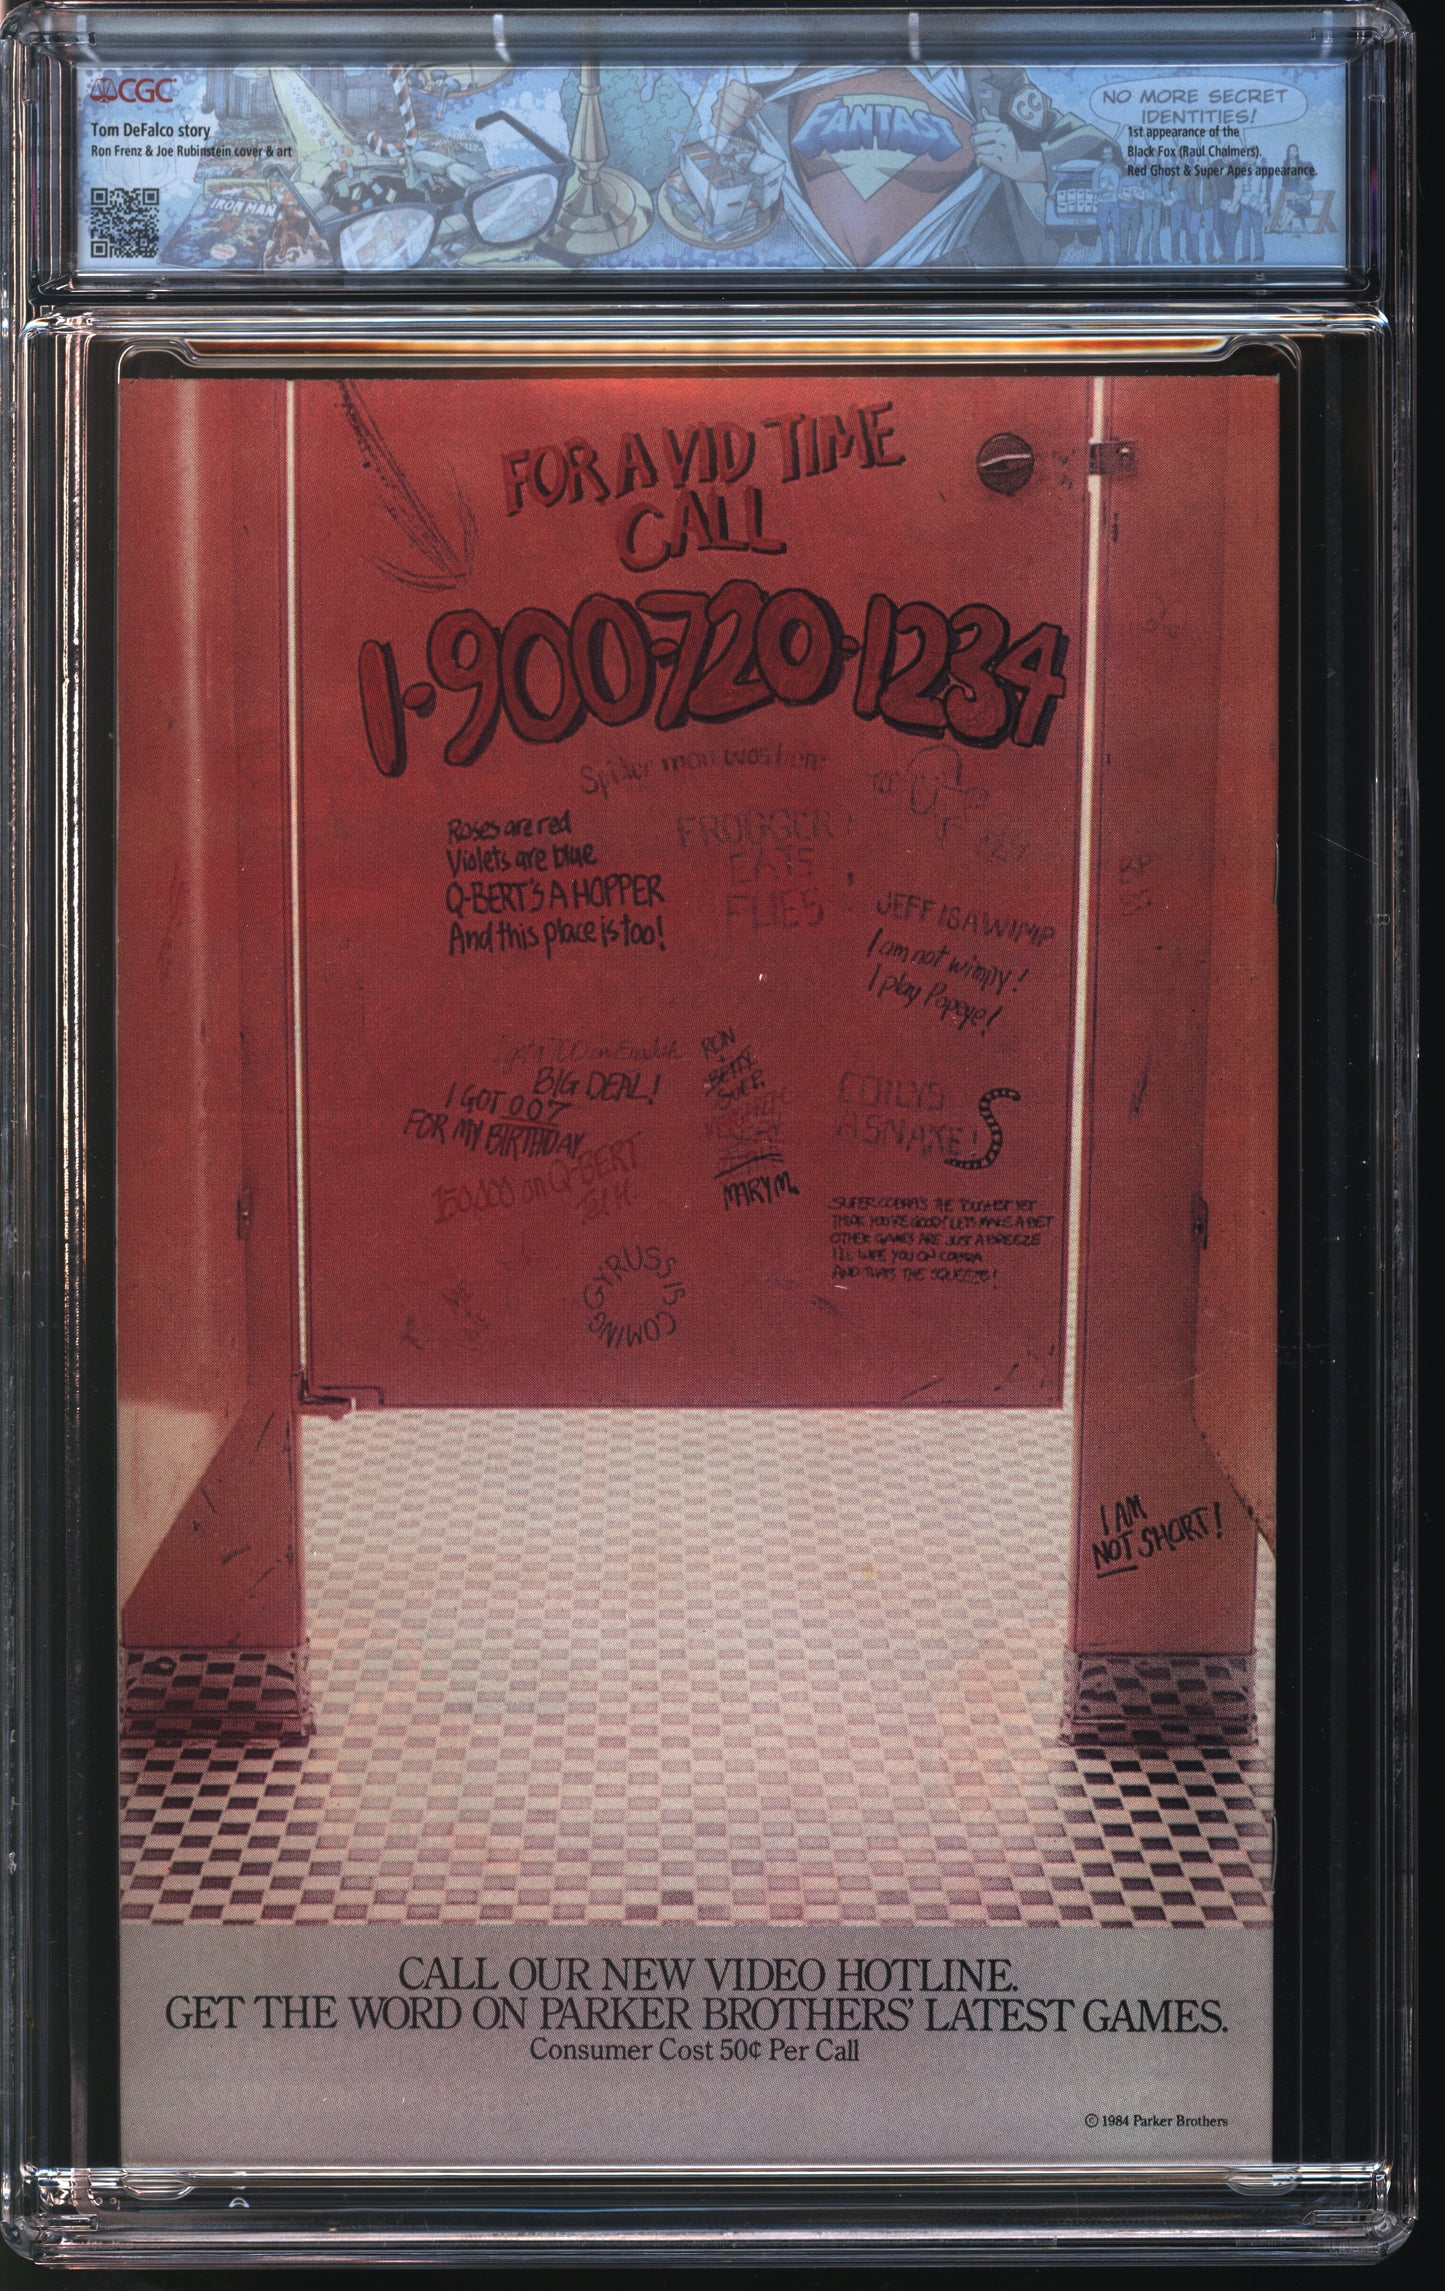 CGC
Tom DeFalco story
Ron Frenz & Joe Rubinstein cover & art
IRON MAN
FANTAST
CC
NO MORE SECRET
IDENTITIES!
1st appearance of the
Black Fox (Raul Chalmers).
Red Ghost & Super Apes appearance.
FOR A VID TIME
CALL
1-900-720-1234
Spider man was here
Roses are red
Violets are blue
Q-BERT'S A HOPPER
And this place is too!
FROGGER
EATS
FLIES
JEFF IS A WIMP
I am not wimpy!
I play Popeye!
I got a 700 on English
BIG DEAL!
I GOT 007
FOR MY BIRTHDAY
150,000 on Q-BERT
RON
BETTY
SUE
MARY M.
COILY'S
A SNAKE
SUPER COBRA'S THE TOUGHEST YET
THINK YOU'RE GOOD? LET'S MAKE A BET
OTHER GAMES ARE JUST A BREEZE
I'LL WIPE YOU ON COBRA
AND THAT'S THE SQUEEZE!
GYRUSS IS COMING
I AM
NOT SHORT!
CALL OUR NEW VIDEO HOTLINE.
GET THE WORD ON PARKER BROTHERS' LATEST GAMES.
Consumer Cost 50¢ Per Call
© 1984 Parker Brothers